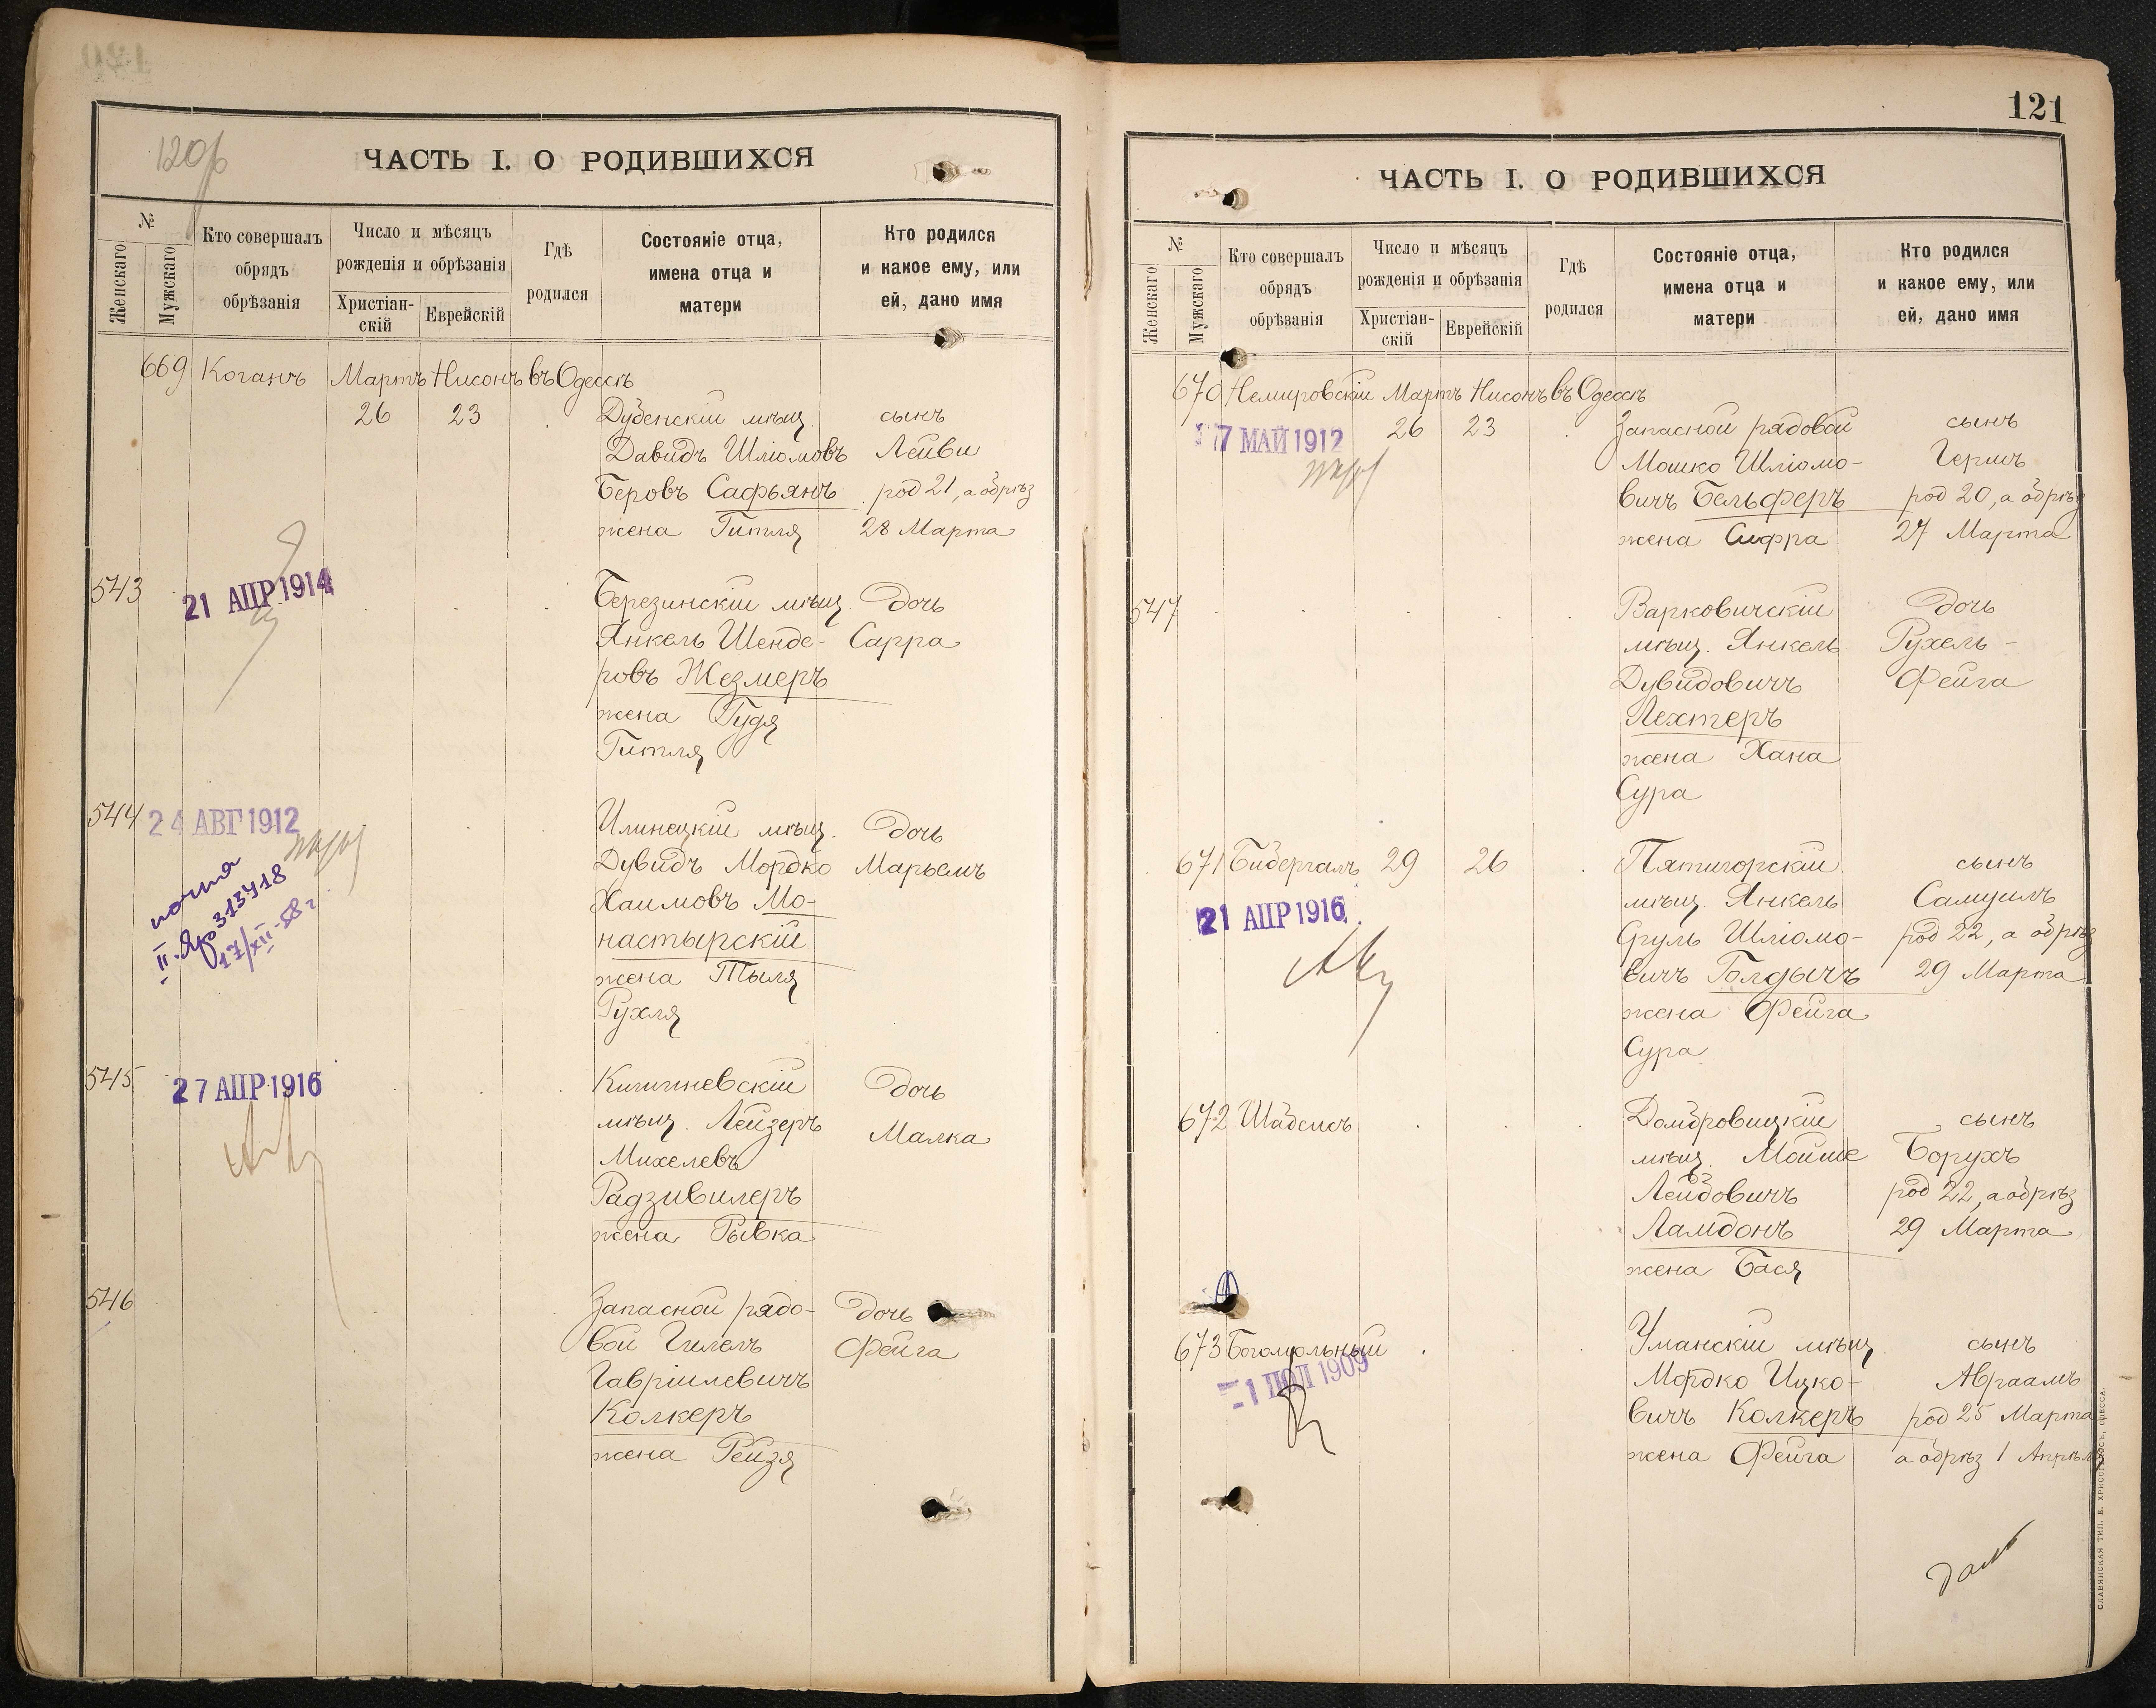 120об
ЧАСТЬ I. О РОДИВШИХСЯ
№
Женскаго
Мужскаго
Кто совершалъ
обрядъ
обрѣзанія
Число и мѣсяцъ
рожденія и обрѣзанія
Христіан-
скій
Еврейскій
Гдѣ
родился
Состояніе отца,
имена отца и
матери
Кто родился
и какое ему, или
ей, дано имя
669 Коганъ Мартъ Нисонъ въ Одессѣ
26 23 Дубенскій мѣщ. сынъ
Давидъ Шліомовъ Лейви
Беровъ Сафьянъ род 21, а обрѣз
жена Гитля 28 Марта
543 21 АПР 1914 Березинскій мѣщ. дочь
Янкель Шенде- Сарра
ровъ Жезмеръ
жена Гудя
Гитля
544 24 АВГ 1912 Илинецкій мѣщ. дочь
Дувидъ Мордко Марьемъ
Хаимовъ Мо-
настырскій
жена Тыля
Рухля
почта
II-Яр 313418
17/XII-58г
545 27 АПР 1916 Кишиневскій дочь
мѣщ. Лейзеръ Малка
Михелевъ
Радзивилеръ
жена Рывка
546 Запасной рядо- дочь
вой Гилель Фейга
Гавріилевичъ
Колкеръ
жена Рейзя
121
ЧАСТЬ I. О РОДИВШИХСЯ
№
Женскаго
Мужскаго
Кто совершалъ
обрядъ
обрѣзанія
Число и мѣсяцъ
рожденія и обрѣзанія
Христіан-
скій
Еврейскій
Гдѣ
родился
Состояніе отца,
имена отца и
матери
Кто родился
и какое ему, или
ей, дано имя
670 Немировскій Мартъ Нисонъ въ Одессѣ
17 МАЙ 1912 26 23 Запасной рядовой сынъ
Мошко Шліомо- Гершъ
вичъ Бельферъ род 20, а обрѣз
жена Сифра 27 Марта
547 Варковичскій дочь
мѣщ. Янкель Рухель-
Дувидовичъ Фейга
Лехтеръ
жена Хана
Сура
671 Бибергалъ 29 26 Пятигорскій сынъ
21 АПР 1916 мѣщ. Янкель Самуилъ
Сруль Шліомо- род 22, а обрѣз
вичъ Голдычъ 29 Марта
жена Фейга
Сура
672 Шабсисъ Домбровицкій сынъ
мѣщ. Мойше Борухъ
Лейбовичъ род 22, а обрѣз
Ламдонъ 29 Марта
жена Бася
673 Богомольный Уманскій мѣщ. сынъ
1 ІЮЛ 1909 Мордко Ицко- Авраамъ
вичъ Колкеръ род 25 Марта
жена Фейга а обрѣз 1 Апрѣля
СЛАВЯНСКАЯ ТИП. Е. ХРИСОГЕЛОСЪ, ОДЕССА.